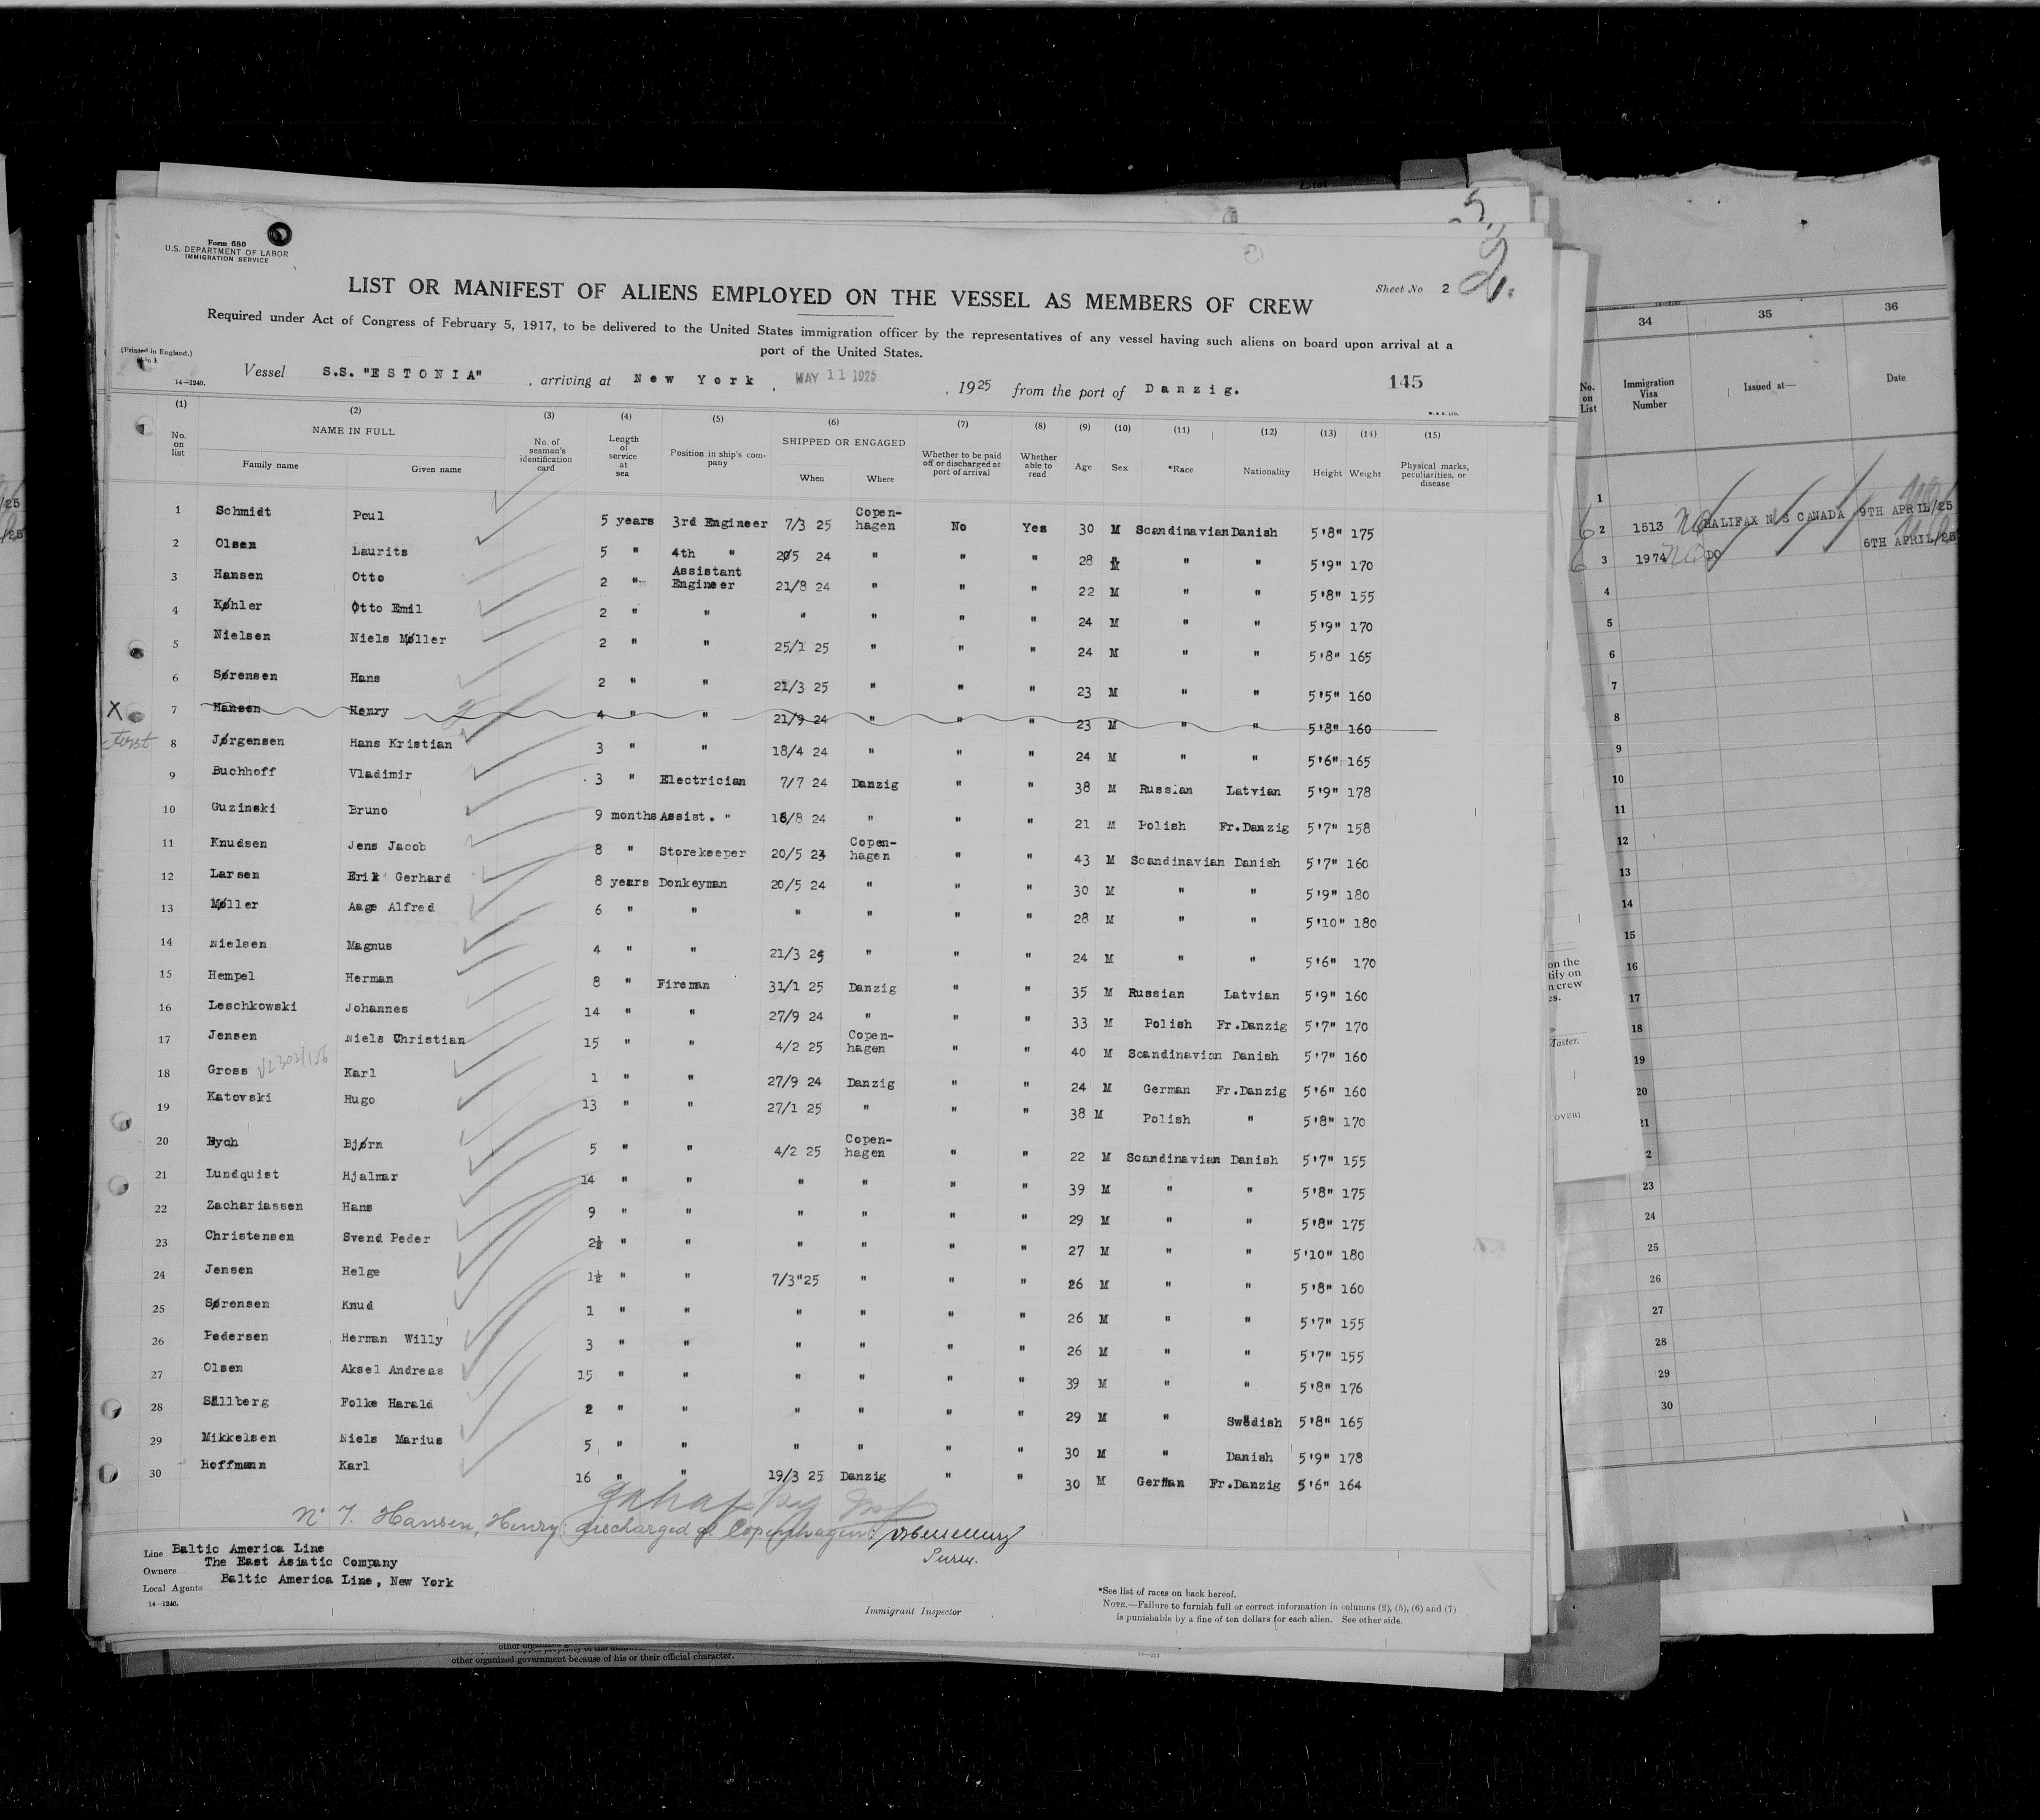 Form 680
U.S. DEPARTMENT OF LABOR
IMMIGRATION SERVICE
Sheet No 2
LIST OR MANIFEST OF ALIENS EMPLOYED ON THE VESSEL AS MEMBERS OF CREW
Required under Act of Congress of February 5, 1917, to be delivered to the United States immigration officer by the representatives of any vessel having such aliens on board upon arrival at a
port of the United States.
(Printed in England.)
14—1240.
Vessel S.S. "ESTONIA" , arriving at New York , MAY 11 1925 , 1925 from the port of Danzig. 145
(1) (2) (3) (4) (5) (6) (7) (8) (9) (10) (11) (12) (13) (14) (15)
No. on list NAME IN FULL Family name Given name No. of seaman's identification card Length of service at sea Position in ship's company SHIPPED OR ENGAGED When Where Whether to be paid off or discharged at port of arrival Whether able to read Age Sex *Race Nationality Height Weight Physical marks, peculiarities, or disease
1 Schmidt Poul 5 years 3rd Engineer 7/3 25 Copen-hagen No Yes 30 M Scandinavian Danish 5'8" 175
2 Olsen Laurits 5 " 4th " 24 " " " 28 " " 5'9" 170
3 Hansen Otto 2 " Assistant Engineer 21/8 24 " " " 22 M " " 5'8" 155
4 Køhler Otto Emil 2 " " " " " " 24 M " " 5'9" 170
5 Nielsen Niels Møller 2 " " 25/1 25 " " " 24 M " " 5'8" 165
6 Sørensen Hans 2 " " 21/3 25 " " " 23 M " " 5'5" 160
7 Hansen Henry 4 " " 21/9 24 " " " 23 M " " 5'8" 160
8 Jørgensen Hans Kristian 3 " " 18/4 24 " " " 24 M " " 5'6" 165
9 Buchhoff Vladimir 3 " Electrician 7/7 24 Danzig " " 38 M Russian Latvian 5'9" 178
10 Guzinski Bruno 9 months Assist. " /8 24 " " " 21 M Polish Fr.Danzig 5'7" 158
11 Knudsen Jens Jacob 8 " Storekeeper 20/5 24 Copen-hagen " " 43 M Scandinavian Danish 5'7" 160
12 Larsen Erik Gerhard 8 years Donkeyman 20/5 24 " " " 30 M " " 5'9" 180
13 Møller Aage Alfred 6 " " " " " " 28 M " " 5'10" 180
14 Nielsen Magnus 4 " " 21/3 " " " 24 M " " 5'6" 170
15 Hempel Herman 8 " Fireman 31/1 25 Danzig " " 35 M Russian Latvian 5'9" 160
16 Leschkowski Johannes 14 " " 27/9 24 " " " 33 M Polish Fr.Danzig 5'7" 170
17 Jensen Niels Christian 15 " " 4/2 25 Copen-hagen " " 40 M Scandinavian Danish 5'7" 160
18 Gross Karl 1 " " 27/9 24 Danzig " " 24 M German Fr.Danzig 5'6" 160
19 Katovski Hugo 13 " " 27/1 25 " " " 38 M Polish " 5'8" 170
20 Bych Bjørn 5 " " 4/2 25 Copen-hagen " " 22 M Scandinavian Danish 5'7" 155
21 Lundquist Hjalmar 14 " " " " " " 39 M " " 5'8" 175
22 Zachariassen Hans 9 " " " " " " 29 M " " 5'8" 175
23 Christensen Svend Peder 2½ " " " " " " 27 M " " 5'10" 180
24 Jensen Helge 1½ " " 7/3"25 " " " 26 M " " 5'8" 160
25 Sørensen Knud 1 " " " " " " 26 M " " 5'7" 155
26 Pedersen Herman Willy 3 " " " " " " 26 M " " 5'7" 155
27 Olsen Aksel Andreas 15 " " " " " " 39 M " " 5'8" 176
28 Sällberg Folke Harald 2 " " " " " " 29 M " Swedish 5'8" 165
29 Mikkelsen Niels Marius 5 " " " " " " 30 M " Danish 5'9" 178
30 Hoffmann Karl 16 " " 19/3 25 Danzig " " 30 M German Fr.Danzig 5'6" 164
No 7. Hansen, Henry: discharged at Copenhagen:
Line Baltic America Line
Owners The East Asiatic Company
Local Agents Baltic America Line, New York
14—1240.
Immigrant Inspector
*See list of races on back hereof.
NOTE.—Failure to furnish full or correct information in columns (2), (5), (6) and (7)
is punishable by a fine of ten dollars for each alien. See other side.
other organized government because of his or their official character.
34 35 36
No. on List Immigration Visa Number Issued at— Date
1
2 1513 HALIFAX N S CANADA 9TH APRIL/25
3 1974 DO 6TH APRIL/25
4
5
6
7
8
9
10
11
12
13
14
15
16
17
18
19
20
23
24
25
26
27
28
29
30